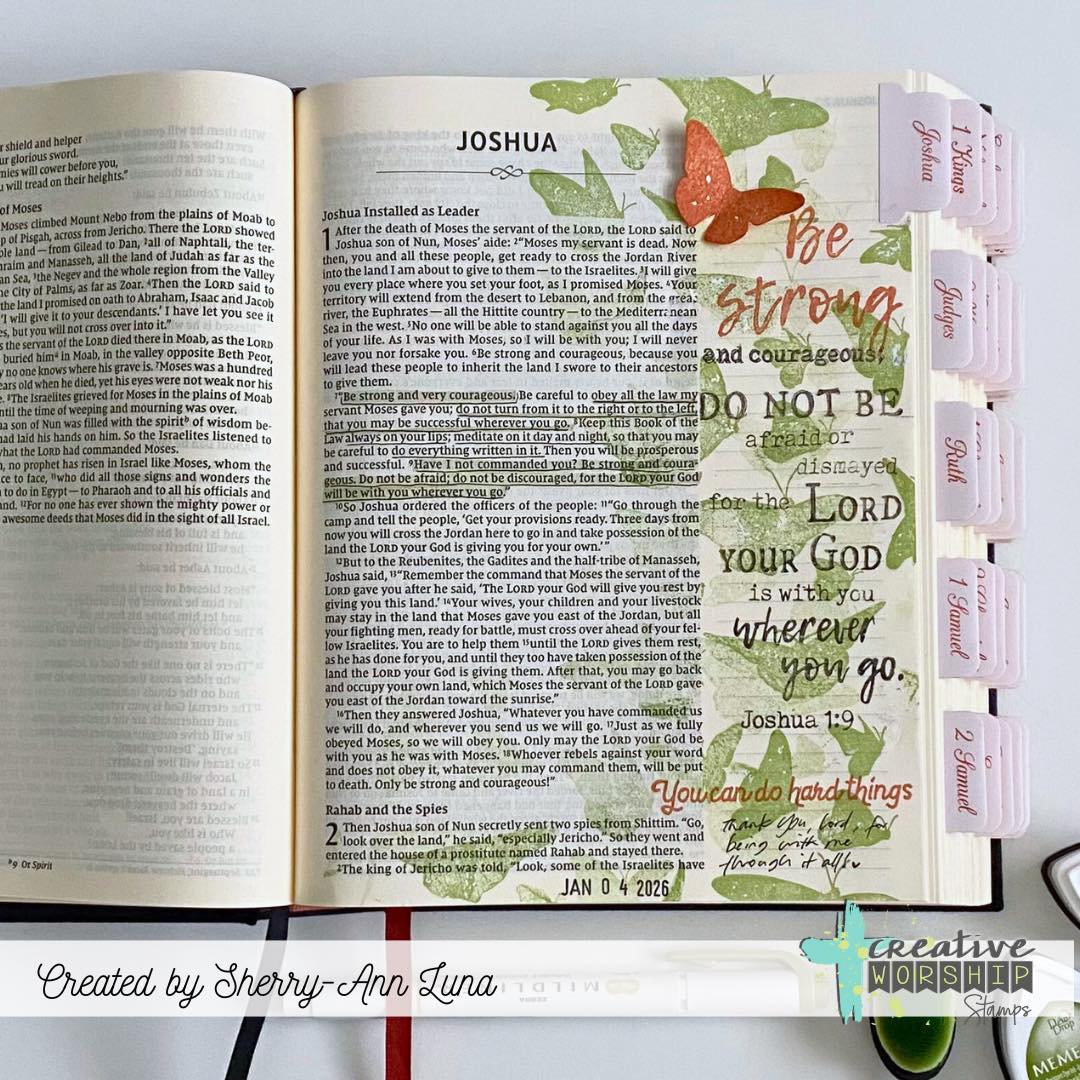 r shield and helper
ur glorious sword.
mies will cower before you,
u will tread on their heights."
of Moses
Moses climbed Mount Nebo from the plains of Moab to
p of Pisgah, across from Jericho. There the LORD showed
ole land — from Gilead to Dan, ²all of Naphtali, the ter-
hraim and Manasseh, all the land of Judah as far as the
an Sea, ³the Negev and the whole region from the Valley
he City of Palms, as far as Zoar. ⁴Then the LORD said to
the land I promised on oath to Abraham, Isaac and Jacob
'I will give it to your descendants.' I have let you see it
es, but you will not cross over into it."
s the servant of the LORD died there in Moab, as the LORD
buried himᵈ in Moab, in the valley opposite Beth Peor,
y no one knows where his grave is. ⁷Moses was a hundred
ears old when he died, yet his eyes were not weak nor his
e. ⁸The Israelites grieved for Moses in the plains of Moab
until the time of weeping and mourning was over.
a son of Nun was filled with the spiritᵇ of wisdom be-
had laid his hands on him. So the Israelites listened to
what the LORD had commanded Moses.
, no prophet has risen in Israel like Moses, whom the
ce to face, ¹¹who did all those signs and wonders the
n to do in Egypt — to Pharaoh and to all his officials and
nd. ¹²For no one has ever shown the mighty power or
awesome deeds that Moses did in the sight of all Israel.
ᵇ9 Or Spirit
JOSHUA
Joshua Installed as Leader
1 After the death of Moses the servant of the LORD, the LORD said to
Joshua son of Nun, Moses' aide: ²"Moses my servant is dead. Now
then, you and all these people, get ready to cross the Jordan River
into the land I am about to give to them — to the Israelites. ³I will give
you every place where you set your foot, as I promised Moses. ⁴Your
territory will extend from the desert to Lebanon, and from the great
river, the Euphrates — all the Hittite country — to the Mediterranean
Sea in the west. ⁵No one will be able to stand against you all the days
of your life. As I was with Moses, so I will be with you; I will never
leave you nor forsake you. ⁶Be strong and courageous, because you
will lead these people to inherit the land I swore to their ancestors
to give them.
⁷"Be strong and very courageous. Be careful to obey all the law my
servant Moses gave you; do not turn from it to the right or to the left,
that you may be successful wherever you go. ⁸Keep this Book of the
Law always on your lips; meditate on it day and night, so that you may
be careful to do everything written in it. Then you will be prosperous
and successful. ⁹Have I not commanded you? Be strong and coura-
geous. Do not be afraid; do not be discouraged, for the LORD your God
will be with you wherever you go."
¹⁰So Joshua ordered the officers of the people: ¹¹"Go through the
camp and tell the people, 'Get your provisions ready. Three days from
now you will cross the Jordan here to go in and take possession of the
land the LORD your God is giving you for your own.'"
¹²But to the Reubenites, the Gadites and the half-tribe of Manasseh,
Joshua said, ¹³"Remember the command that Moses the servant of the
LORD gave you after he said, 'The LORD your God will give you rest by
giving you this land.' ¹⁴Your wives, your children and your livestock
may stay in the land that Moses gave you east of the Jordan, but all
your fighting men, ready for battle, must cross over ahead of your fel-
low Israelites. You are to help them ¹⁵until the LORD gives them rest,
as he has done for you, and until they too have taken possession of the
land the LORD your God is giving them. After that, you may go back
and occupy your own land, which Moses the servant of the LORD gave
you east of the Jordan toward the sunrise."
¹⁶Then they answered Joshua, "Whatever you have commanded us
we will do, and wherever you send us we will go. ¹⁷Just as we fully
obeyed Moses, so we will obey you. Only may the LORD your God be
with you as he was with Moses. ¹⁸Whoever rebels against your word
and does not obey it, whatever you may command them, will be put
to death. Only be strong and courageous!"
Rahab and the Spies
2 Then Joshua son of Nun secretly sent two spies from Shittim. "Go,
look over the land," he said, "especially Jericho." So they went and
entered the house of a prostitute named Rahab and stayed there.
²The king of Jericho was told, "Look, some of the Israelites have
JAN 04 2026
Be
strong
and courageous;
DO NOT BE
afraid or
dismayed
for the LORD
YOUR GOD
is with you
wherever
you go.
Joshua 1:9
You can do hard things
Thank you, Lord, for
being with me
through it all!
Joshua
1 Kings
Judges
Ruth
1 Samuel
2 Samuel
Created by Sherry-Ann Luna
creative
WORSHIP
Stamps
MILDLI
ZEBRA
Dew
Drop
MEME